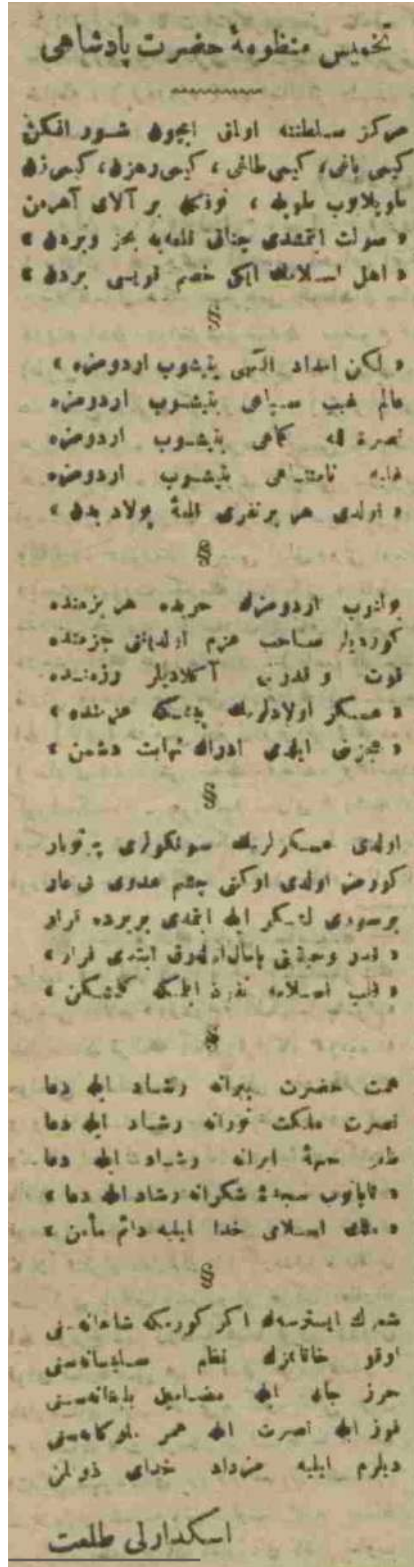 تخميس منظومهٔ حضرت پادشاهی
مركز سلطنته اولمق ايچون شور افكن
كيمی باغی، كيمی طاغی، كيمی رهزن، كيمی زن
طوپلانوب بر آلای آهرمن
« صولت ايتمشدی چناق قلعه‌يه بحر و بردن »
« اهل اسلامك ايكی خصم قويسی بردن »
§
« لكن امداد الهی يتيشوب اردومزه »
عالم غيب سپاهی يتيشوب اردومزه
نصرة الله كماهی يتيشوب اردومزه
نامتناهی يتيشوب اردومزه
« اولدی هر بر نفری قلعهٔ پولاد بدن »
§
بولنوب اردومزك حربده هر بزمنده
كورديلر صاحب عزم اولديغنی جزمنده
قوت و قدرتی آكلاديلر رزمنده
« عسكر اولادلرمك پيشكه عزمنده »
« عجزينی ايلدی ادراك نهايت دشمن »
§
اولدی عسكرلرمك سونكولری پرتوبار
كورمز اولدی اوكنی چشم عدوی بی عار
برسوری لشكر ايله ايتمدی بريرده قرار
« قدر و حيثيتی پامال اوله‌رق ايتدی فرار »
« قلب اسلامه نفوذ ايتمكه كلمشكن »
§
همت حضرت پيرانه رشاد ايله دعا
نصرت ملكت نورانه رشاد ايله دعا
ايرانه رشاد ايله دعا
« قاپانوب سجدهٔ شكرانه رشاد ايله دعا »
« ملك اسلامی خدا ايليه دائم مأمن »
§
شعرك ايسترسه‌ك اكر كورمكه شاهانه‌سنی
اوقو خاقانمزك نظم سليمانه‌سنی
حرز جان ايله مضامين بليغانه‌سنی
فوز ايله نصرت ايله عمر ملوكانه‌سنی
ديلرم ايليه مزداد خدای ذو المن
اسكدارلی طلعت